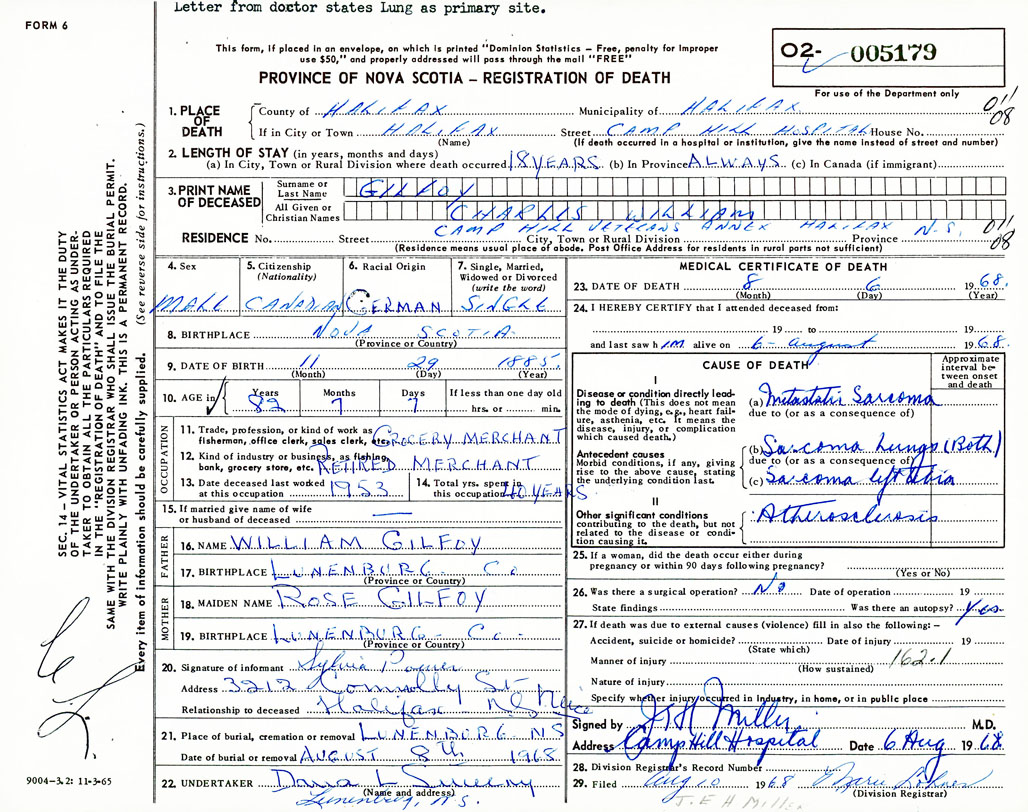 Letter from doctor states Lung as primary site.
FORM 6
This form, if placed in an envelope, on which is printed "Dominion Statistics – Free, penalty for improper
use $50," and properly addressed will pass through the mail "FREE"
PROVINCE OF NOVA SCOTIA – REGISTRATION OF DEATH
02- 005179
For use of the Department only
SEC. 14 – VITAL STATISTICS ACT MAKES IT THE DUTY
OF THE UNDERTAKER OR PERSON ACTING AS UNDER-
TAKER TO OBTAIN ALL THE PARTICULARS REQUIRED
IN THE "REGISTRATION OF DEATH" AND TO FILE THE
SAME WITH THE DIVISION REGISTRAR WHO SHALL ISSUE THE BURIAL PERMIT.
WRITE PLAINLY WITH UNFADING INK. THIS IS A PERMANENT RECORD.
Every item of information should be carefully supplied. (See reverse side for instructions.)
1. PLACE OF DEATH County of HALIFAX Municipality of HALIFAX 011 08
If in City or Town HALIFAX Street CAMP HILL HOSPITAL House No.
(Name) (If death occurred in a hospital or institution, give the name instead of street and number)
2. LENGTH OF STAY (in years, months and days)
(a) In City, Town or Rural Division where death occurred 18 YEARS (b) In Province ALWAYS (c) In Canada (if immigrant)
3. PRINT NAME OF DECEASED Surname or Last Name GILFOY
All Given or Christian Names CHARLES WILLIAM
CAMP HILL VETERANS ANNEX HALIFAX N.S. 011 08
RESIDENCE No. Street City, Town or Rural Division Province
(Residence means usual place of abode. Post Office Address for residents in rural parts not sufficient)
4. Sex MALE
5. Citizenship (Nationality) CANADIAN
6. Racial Origin GERMAN
7. Single, Married, Widowed or Divorced (write the word) SINGLE
8. BIRTHPLACE NOVA SCOTIA
(Province or Country)
9. DATE OF BIRTH 11 29 1885
(Month) (Day) (Year)
10. AGE in Years Months Days If less than one day old
82 7 7 hrs. or min.
OCCUPATION
11. Trade, profession, or kind of work as
fisherman, office clerk, sales clerk, etc. GROCERY MERCHANT
12. Kind of industry or business, as fishing,
bank, grocery store, etc. RETIRED MERCHANT
13. Date deceased last worked
at this occupation 1953
14. Total yrs. spent in
this occupation 40 YEARS
15. If married give name of wife
or husband of deceased —
FATHER
16. NAME WILLIAM GILFOY
17. BIRTHPLACE LUNENBURG Co
(Province or Country)
MOTHER
18. MAIDEN NAME ROSE GILFOY
19. BIRTHPLACE LUNENBURG Co.
(Province or Country)
20. Signature of informant Sylvia Power
Address 3212 Connolly St
Relationship to deceased Halifax NS Niece
21. Place of burial, cremation or removal LUNENBURG NS
Date of burial or removal AUGUST 8th 1968
22. UNDERTAKER Dana L Sweeny
(Name and address)
Lunenburg, N.S.
9004–3.2: 11-3-65
MEDICAL CERTIFICATE OF DEATH
23. DATE OF DEATH 8 6 1968.
(Month) (Day) (Year)
24. I HEREBY CERTIFY that I attended deceased from:
19 to 19
and last saw him alive on 6 - August 1968.
CAUSE OF DEATH
Approximate interval between onset and death
I
Disease or condition directly lead-
ing to death (This does not mean
the mode of dying, e.g., heart fail-
ure, asthenia, etc. It means the
disease, injury, or complication
which caused death.)
(a) Metastatic Sarcoma
due to (or as a consequence of)
Antecedent causes
Morbid conditions, if any, giving
rise to the above cause, stating
the underlying condition last.
(b) Sarcoma Lungs (Both)
due to (or as a consequence of)
(c) Sarcoma left tibia
II
Other significant conditions
contributing to the death, but not
related to the disease or condi-
tion causing it.
Atherosclerosis
25. If a woman, did the death occur either during
pregnancy or within 90 days following pregnancy?
(Yes or No)
26. Was there a surgical operation? No Date of operation 19
State findings Was there an autopsy? Yes
27. If death was due to external causes (violence) fill in also the following: –
Accident, suicide or homicide? Date of injury 19
(State which)
Manner of injury 162.1
(How sustained)
Nature of injury
Specify whether injury occurred in Industry, in home, or in public place
Signed by J E H Miller M.D.
Address Camp Hill Hospital Date 6 Aug 1968
28. Division Registrar's Record Number
29. Filed Aug 10 1968
(Division Registrar)
J. E H Miller